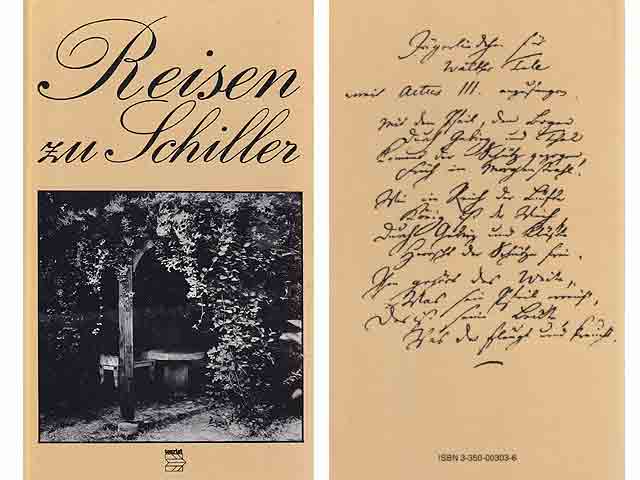 Reisen
zu Schiller
tourist
Jägerliedchen für
Walther Tell
womit Actus III. anzufangen.
Mit dem Pfeil, dem Bogen
Durch Gebirg und Thal
Kommt der Schütz gezogen,
Früh im Morgenstrahl.
Wie im Reich der Lüfte
König ist der Weih
Durch Gebirg und Klüfte
Herrscht der Schütze frei.
Ihm gehört das Weite,
Was sein Pfeil erreicht,
Das ist seine Beute
Was da fleugt und kreucht.
ISBN 3-350-00303-6